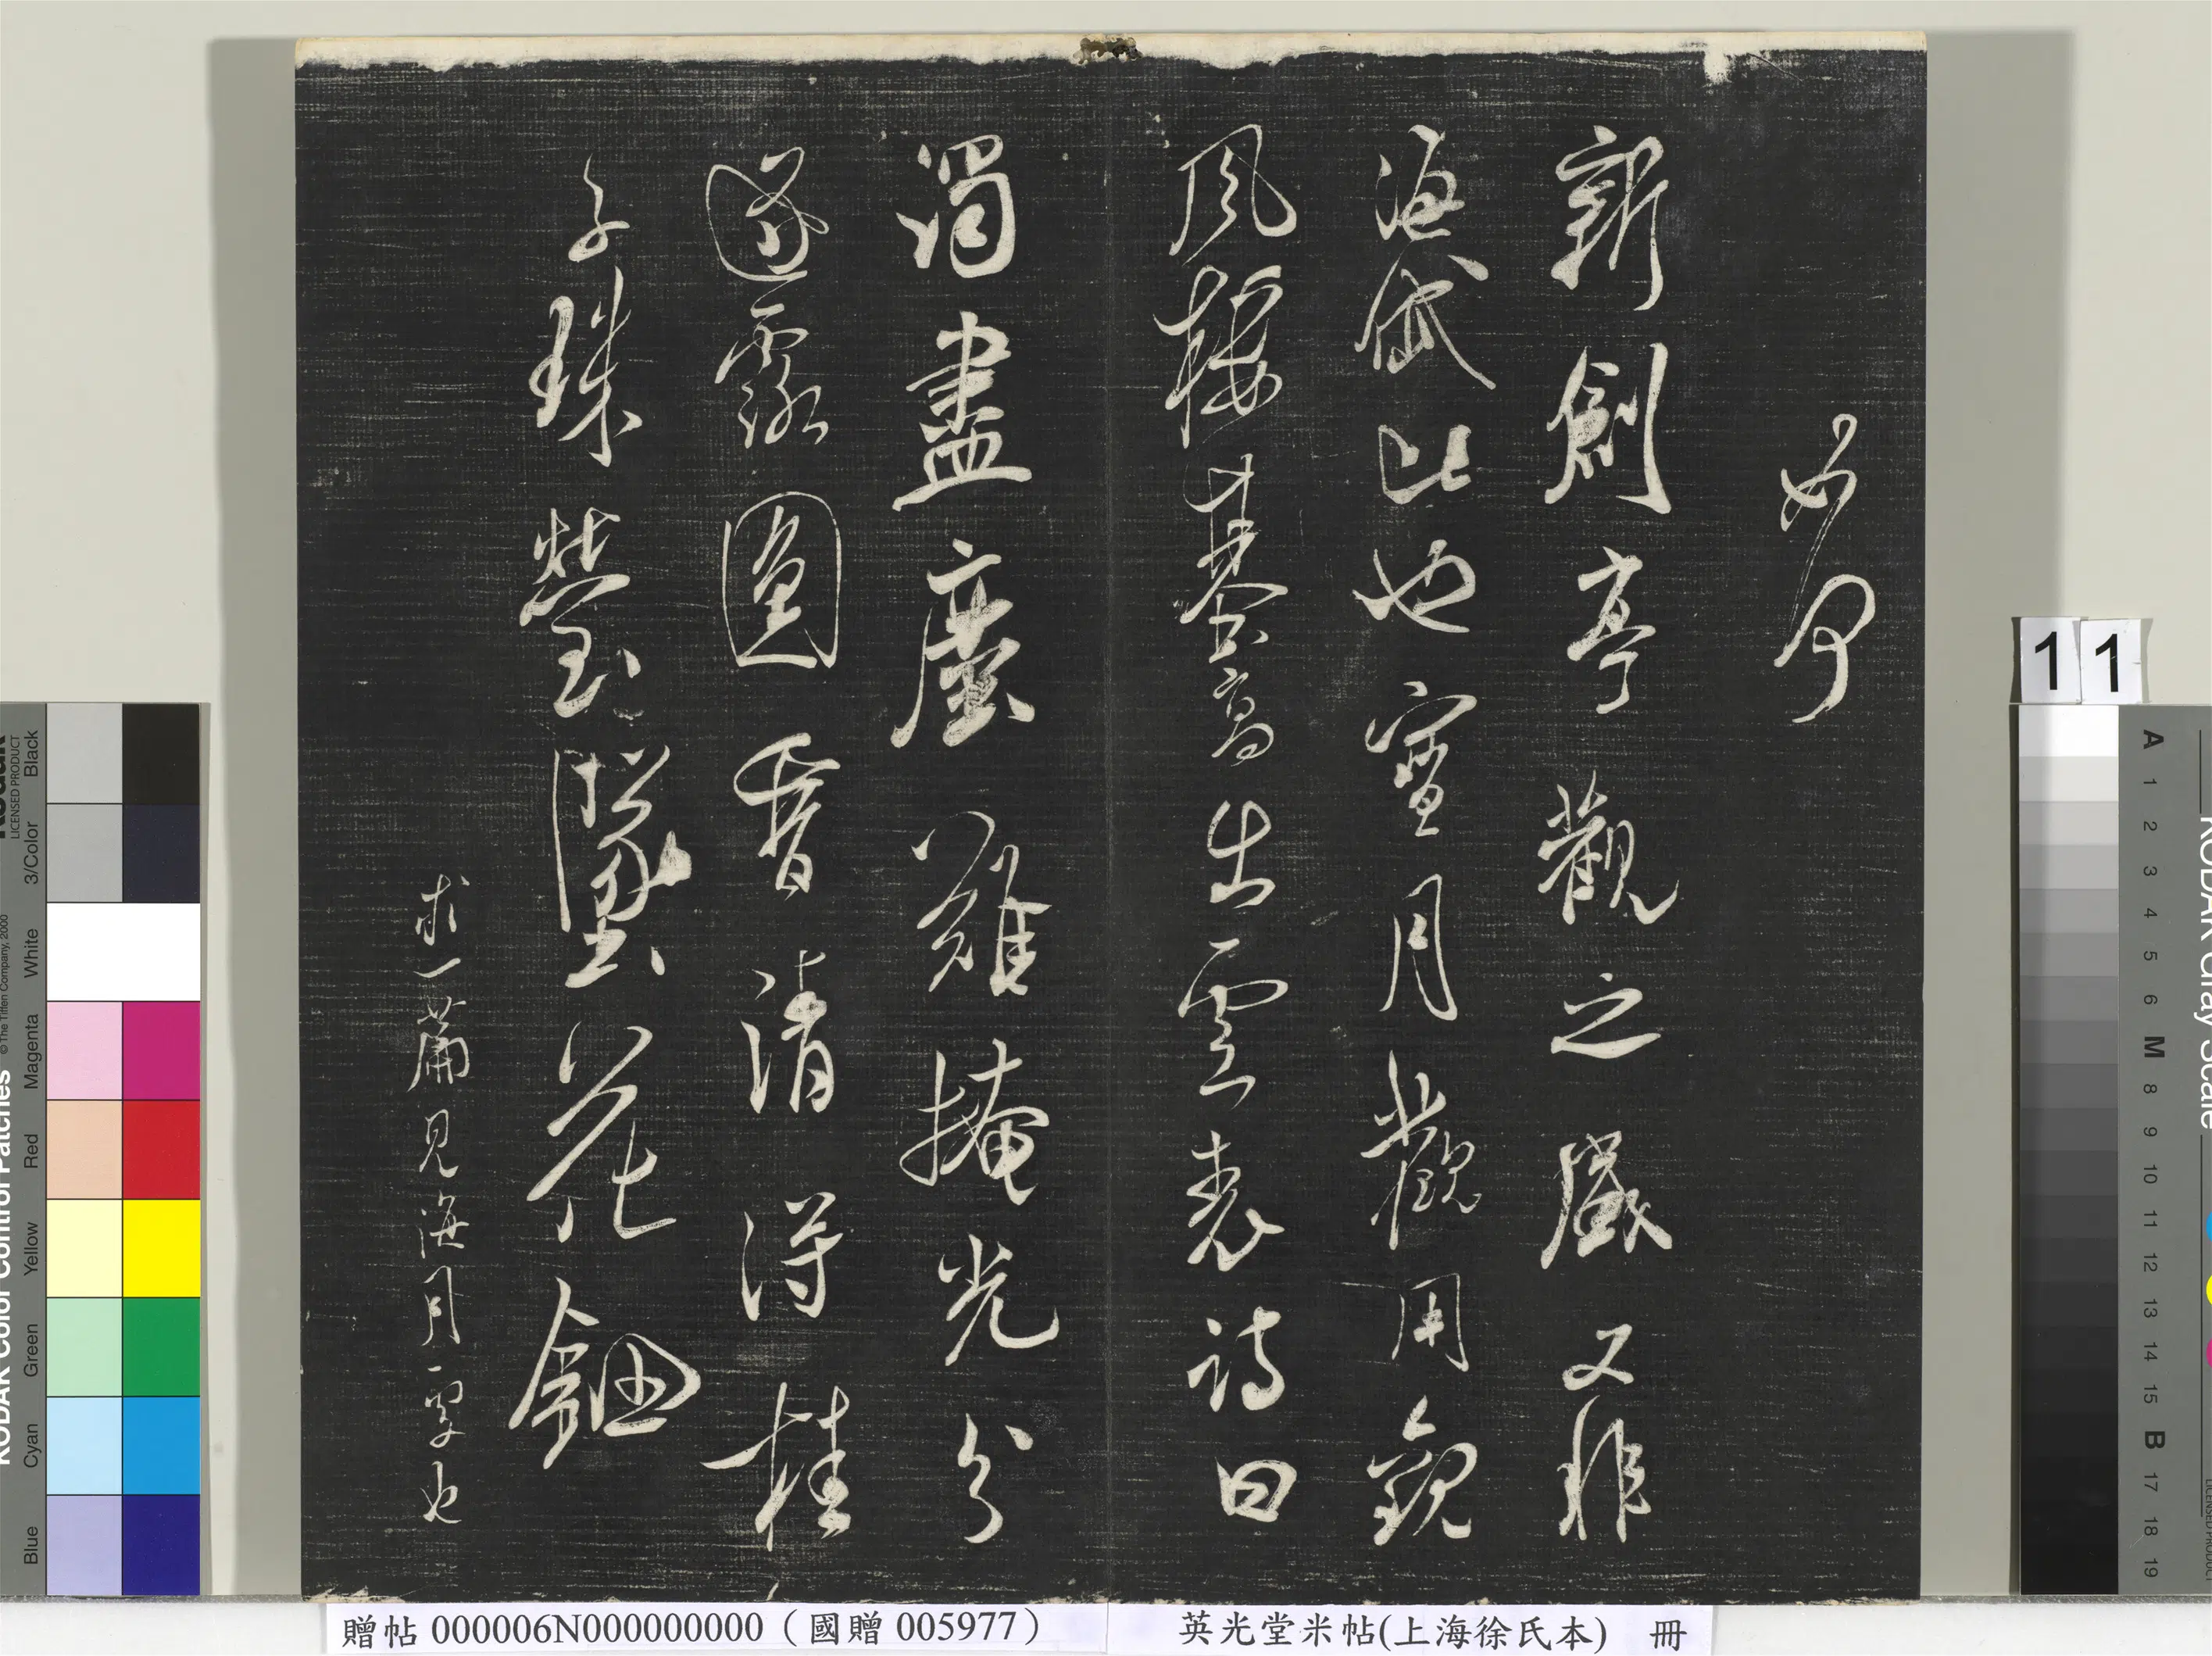 如何
新創亭觀之盛又非
海岱比也寶月觀用
風樓基高出雲表詩曰
濁盡塵難掩光分
遂露圓香清得桂
子珠瑩墜花鈿
求一篇見海月也
11
贈帖 000006N000000000 (國贈 005977)
英光堂米帖(上海徐氏本) 冊
KODAK Color Control Patches
© The Tiffen Company, 2000
Kodak
LICENSED PRODUCT
Blue Cyan Green Yellow Red Magenta White 3/Color Black
KODAK Gray Scale
A 1 2 3 4 5 6 M 8 9 10 11 12 13 14 15 B 17 18 19